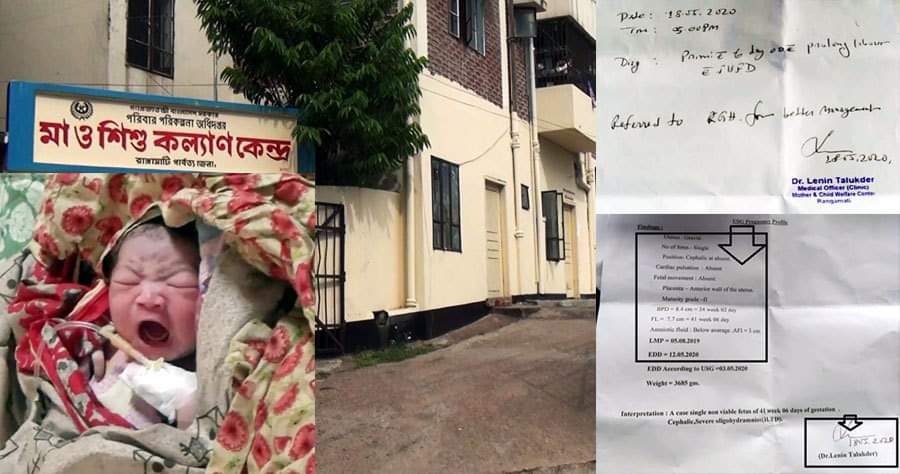 গণপ্রজাতন্ত্রী বাংলাদেশ সরকার
পরিবার পরিকল্পনা অধিদপ্তর
মা ও শিশু কল্যাণ কেন্দ্র
রাঙ্গামাটি পার্বত্য জেলা।
Date : 18.05.2020
Time : 05.00PM
Diag :
prolong labour
Referred to RGH for better management
18.05.2020,
Dr. Lenin Talukder
Medical Officer (Clinic)
Mother & Child Welfare Center
Rangamati.
USG Pregnancy Profile
Findings :
Uterus : Gravid
No of fetus - Single
Position- Cephalic at
Cardiac pulsation : Absent
Fetal movement : Absent
Placenta – Anterior wall of the uterus
Maturity grade –II
BPD = 8.4 cm = 34 week 02 day
FL = 7.7 cm = 41 week 06 day
Amniotic fluid : Below average .AFI = 3 cm
LMP = 05.08.2019
EDD = 12.05.2020
EDD According to USG =03.05.2020
Weight = 3685 gm.
Interpretation : A case single non viable fetus of 41 week 06 days of gestation .
Cephalic,Severe oligohydramnios
18.05.2020
(Dr.Lenin Talukder)